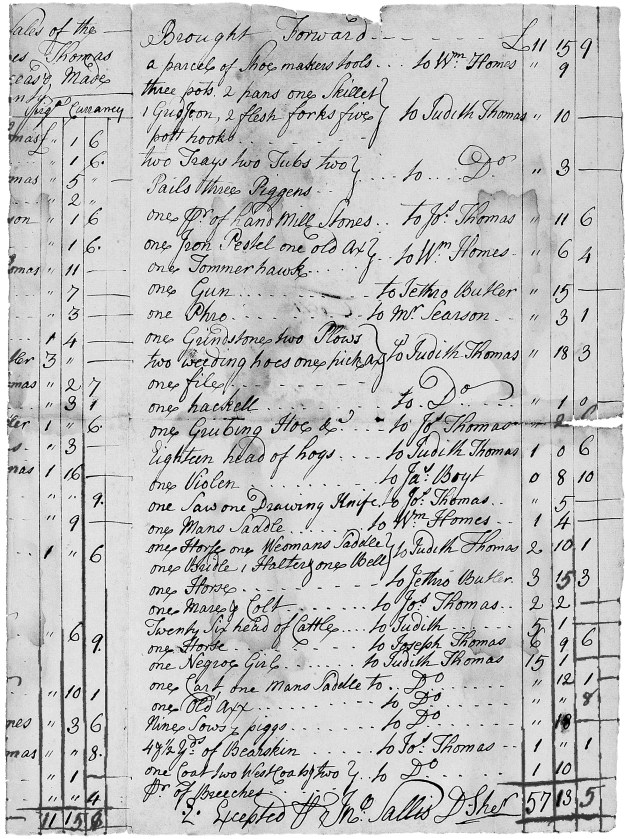 Sales of the
es Thomas
ceasd, Made
Currancy
Brought Forward £11 15 9
a parcel of Shoe makers tools to Wm Homes " 9
three pots 2 pans one Skillet
1 Gridjron, 2 flesh forks five to Judith Thomas " 10 —
pott hooks
two Trays two Tubs two to Do " 3 —
Pails three Piggens
one pr. of hand Mill Stones to Jos. Thomas " 11 6
one Iron Pestel one old Ax to Wm Homes " 6 4
one Tommerhawk
one Gun to Jethro Butler " 15 —
one Phro to Mr. Searson " 3 1
one Grindstone two Plows
two weeding hoes one pick ax to Judith Thomas " 18 3
one file
one hackell to Do " 1 0
one Grubing Hoe &c to Jos. Thomas
Eighteen head of hogs to Judith Thomas 1 0 6
one Violen to Jas. Boyt 0 8 10
one Saw one Drawing Knife to Jos. Thomas " 5 —
one Mans Saddle to Wm Homes 1 4 —
one Horse one Weomans Saddle
one Bridle 1 Halter & one Bell to Judith Thomas 2 10 1
one Horse to Jethro Butler 3 15 3
one Mare & Colt to Jos. Thomas 2 2 —
Twenty Six head of Cattle to Judith 5 1 —
one Horse to Joseph Thomas 6 9 6
one Negroe Girl to Judith Thomas 15 1 —
one Cart, one Mans Saddle to Do " 12 1
one Old Axx to Do " " 8
Nine Sows & piggs to Do " 18 —
49½ yds. of Bearskin to Jos. Thomas 1 " 1
one Coat two West Coats & two to Do 1 10 —
pr. of Breeches
Excepted Pr Jno. Sallis D Sher 57 13 5
11 15 8